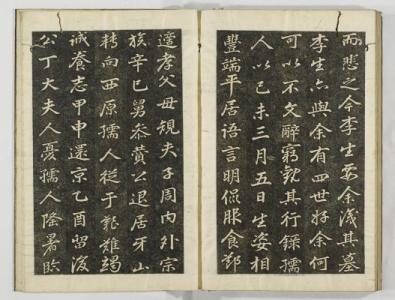 而悲之今李生要余浅其墓
李生亦與余有四世好余何
可以不文辭窮乾其行錄孺
人以己未三月五日生姿相
豐端平居語言明侃服食鄙
遼孝父母規夫子周內外宗
族辛巳舅忝黄公退居牙山
轉向西原孺人從于艱難竭
誠養志甲申還京乙酉留後
公丁大夫人憂孺人隆暑